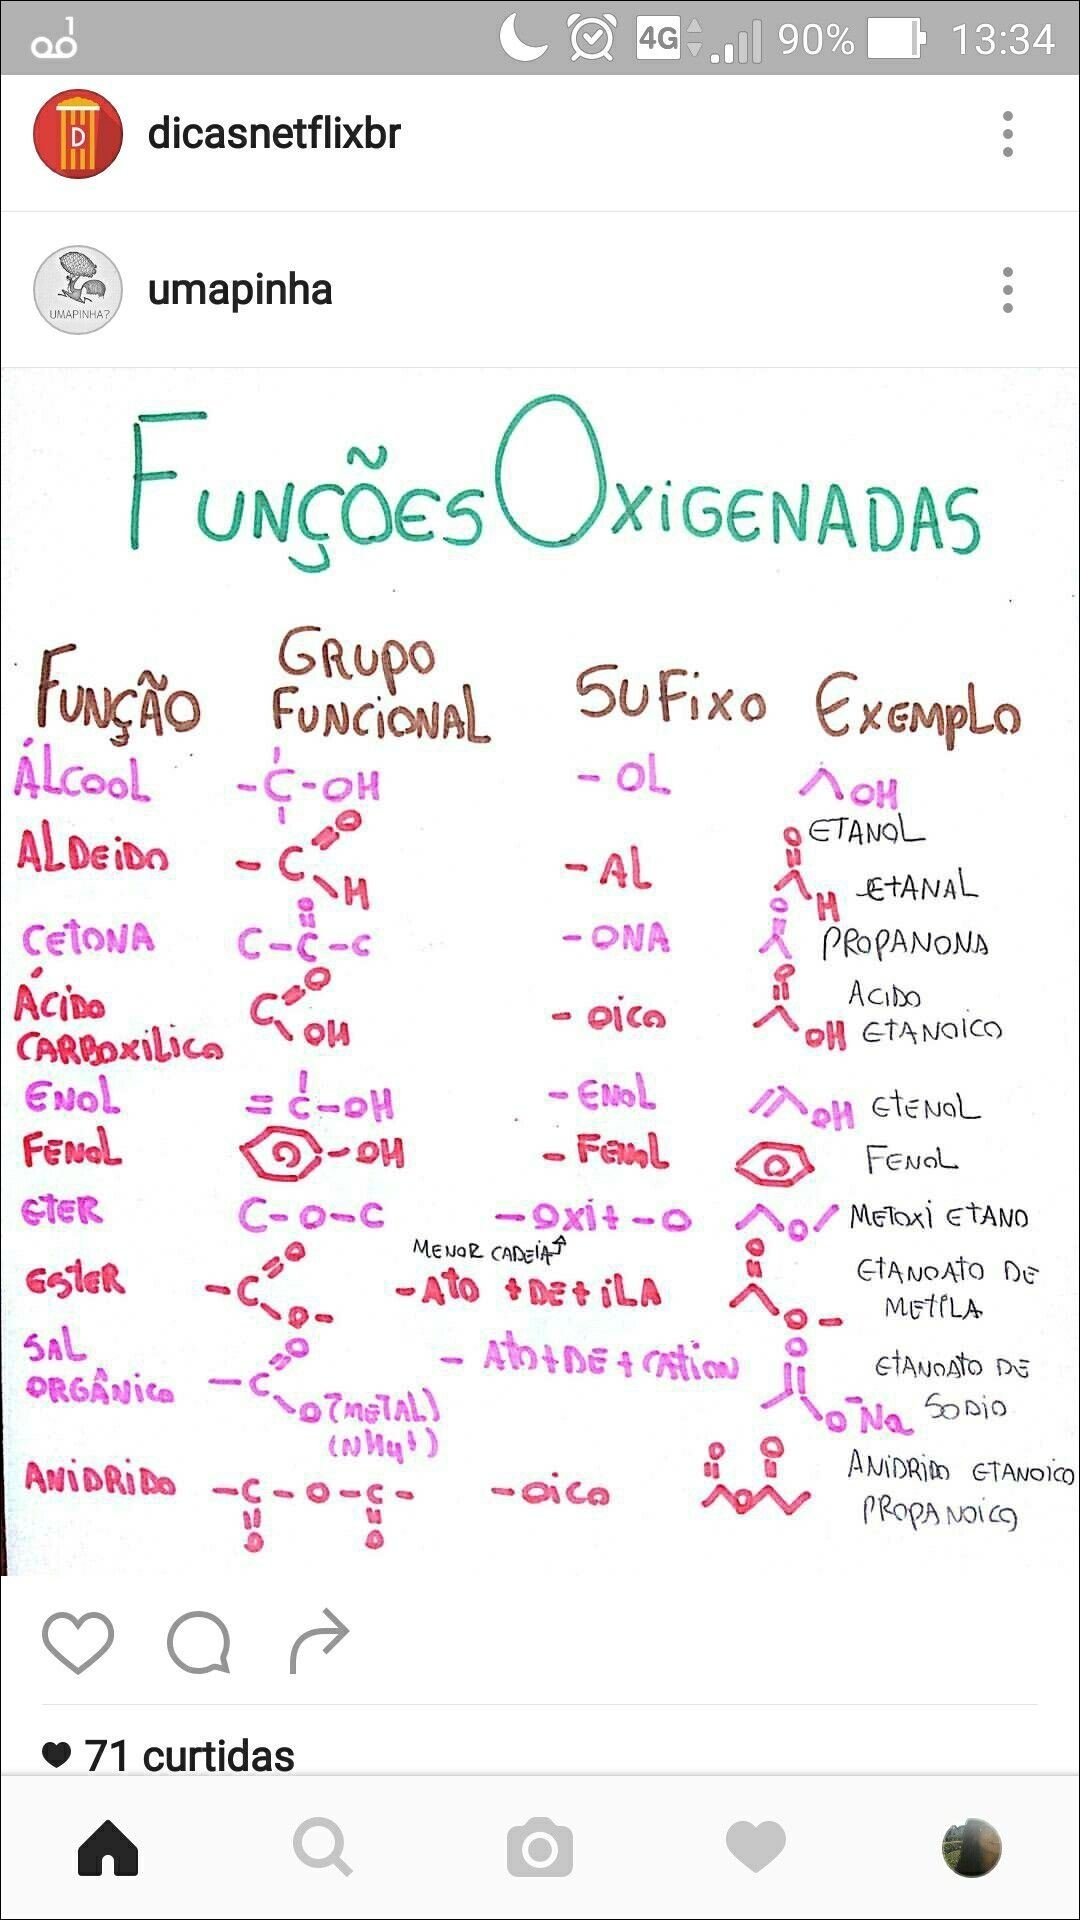 4G 90% 13:34
D dicasnetflixbr
UMAPINHA? umapinha
FUNÇÕES OXIGENADAS
FUNÇÃO GRUPO FUNCIONAL SUFIXO EXEMPLO
ÁLCOOL -C-OH -OL OH ETANOL
ALDEIDO -C O H -AL O H ETANAL
CETONA C-C-C O -ONA O PROPANONA
ÁCIDO CARBOXILICO C O OH -OICO O OH ACIDO ETANOICO
ENOL =C-OH -ENOL OH ETENOL
FENOL -OH -FENOL FENOL
ETER C-O-C -OXI+-O O METOXI ETANO
MENOR CADEIA
ESTER -C O O- -ATO+DE+ILA O O- ETANOATO DE METILA
SAL ORGÂNICO -C O O-(METAL) (NH4+) -ATO+DE+CATION O O-Na ETANOATO DE SODIO
ANIDRIDO -C-O-C- O O -OICO O O O ANIDRIDO ETANOICO PROPANOICO
71 curtidas